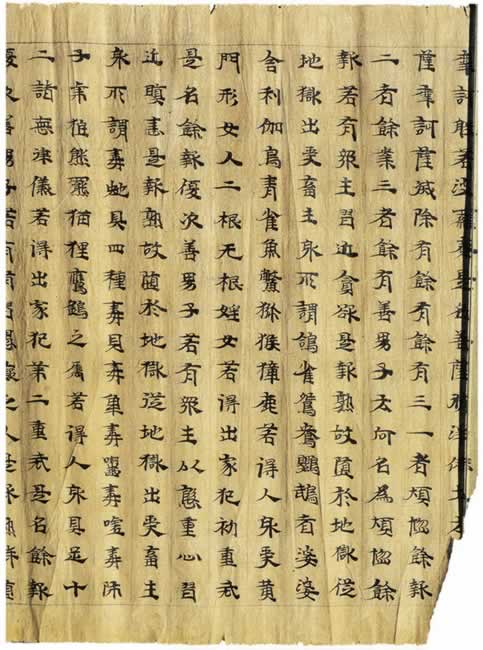 薩摩訶薩滅除有餘有餘有三一者煩惱餘報
二者餘業三者餘有善男子云何名為煩惱餘
報若有眾生習近貪欲是報熟故墮於地獄從
地獄出受畜生身所謂鴿雀鴛鴦鸚鵡耆婆婆
舍利伽鳥青雀魚鱉獼猴獐鹿若得人身受黃
門形女人二根无根婬女若得出家犯初重戒
是名餘報復次善男子若有眾生以慇重心習
近瞋恚是報熟故墮於地獄從地獄出受畜生
身所謂毒虵具四種毒見毒觸毒齧毒嘘毒師
子虎狼熊羆猫狸鷹鷂之屬若得人身具足十
二諸惡律儀若得出家犯第二重戒是名餘報
復次善男子若有習愚癡之人是報熟